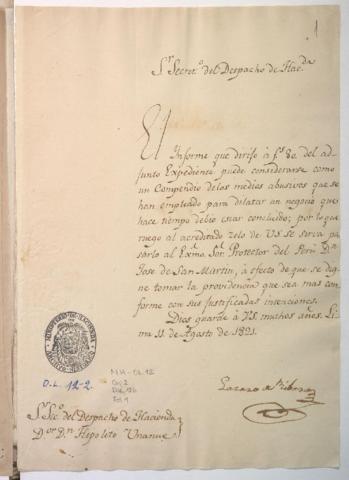 1
Sr. Secreto. del Despacho de Hacda.
El Informe que dirijo á fs. 80 del ad-
junto Expediente puede considerarse como
un Compendio delos medios abusivos que se
han empleado para dilatar un negocio que
hace tiempo debio estar concluido; por lo que
ruego al acreditado zelo de V.S. se sirva pa-
sarlo al Exmo. Sor. Protector del Perú Dn.
Jose de San Martin, á efecto de que se dig-
ne tomar la providencia que sea mas con-
forme con sus justificadas intenciones.
Dios guarde á V.S. muchos años. Li-
ma 11 de Agosto de 1821.
Lazaro de Ribera
MINISTERIO DE HACIENDA
O.L. 12-2
MH-OL 12
Fol 1
Sr. Sco. del Despacho de Hacienda
Dor. Dn. Hipolito Unanue